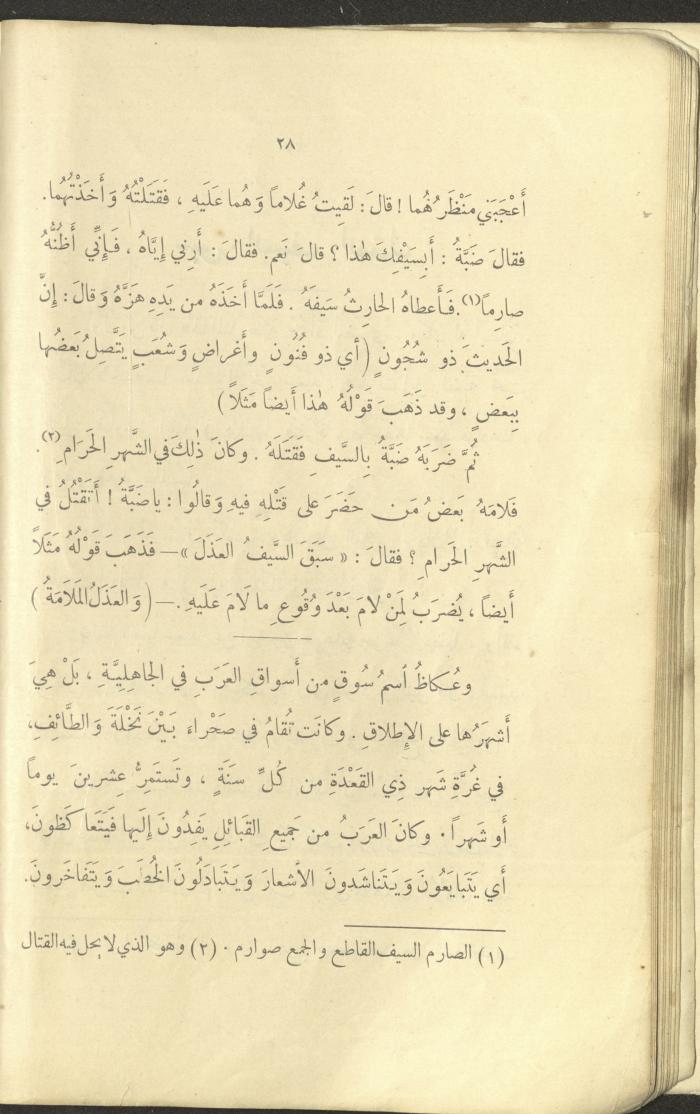 ٢٨
أَعْجَبَني مَنْظَرُهُما ! قالَ : لَقِيتُ غُلاماً وَهُما عَلَيهِ ، فَقَتَلْتُهُ وَأَخَذْتُهُما.
فقالَ ضَبَّةُ : أَبِسَيْفِكَ هٰذا ؟ قالَ نَعم. فقالَ : أَرِني إِيَّاهُ ، فَإِنِّي أَظُنُّهُ
صارِماً(١). فَأَعطاهُ الحارِثُ سَيفَهُ . فَلَمَّا أَخَذَهُ من يَدِهِ هَزَّهُ وَقالَ : إِنَّ
الحَديثَ ذو شُجُونٍ (أي ذو فُنُونٍ وأَغراضٍ وَشُعَبٍ يَتَّصِلُ بَعضُها
بِبَعضٍ ، وقد ذَهَبَ قَوْلُهُ هٰذا أَيضاً مَثَلاً)
ثُمَّ ضَرَبَهُ ضَبَّةُ بِالسَّيفِ فَقَتَلَهُ . وكانَ ذٰلِكَ في الشَّهرِ الحَرَامِ(٢) .
فَلامَهُ بَعضُ مَن حَضَرَ على قَتْلِهِ فيهِ وَقالُوا : ياضَبَّةُ ! أَتَقْتُلُ في
الشَّهرِ الحَرامِ ؟ فقالَ : « سَبَقَ السَّيفُ العَذَلَ » — فَذَهَبَ قَوْلُهُ مَثَلاً
أَيضاً ، يُضرَبُ لِمَنْ لامَ بَعْدَ وُقُوعِ ما لَامَ عَلَيهِ . — (وَالعَذَلُ المَلَامَةُ )
وعُكاظُ ٱسمُ سُوقٍ من أَسواقِ العَرَبِ في الجاهِلِيَّةِ ، بَلْ هِيَ
أَشهَرُها على الإِطلاقِ . وكانَت تُقامُ في صَحْراءَ بَيْنَ نَخْلَةَ وَالطَّائِفِ،
في غُرَّةِ شَهر ذِي القَعْدَةِ من كُلِّ سَنَةٍ ، وتَستَمِرُّ عِشرينَ يوماً
أَو شَهراً . وكانَ العَرَبُ من جَميعِ القَبائِلِ يَفِدُونَ إِلَيها فَيَتَعا كَظونَ،
أَي يَتَبايَعُونَ وَيَتَناشَدونَ الأَشعارَ وَيَتَبادَلُونَ الخُطَبَ وَيَتَفاخَرونَ.
(١) الصارم السيف القاطع والجمع صوارم . (٢) وهو الذي لا يحل فيه القتال